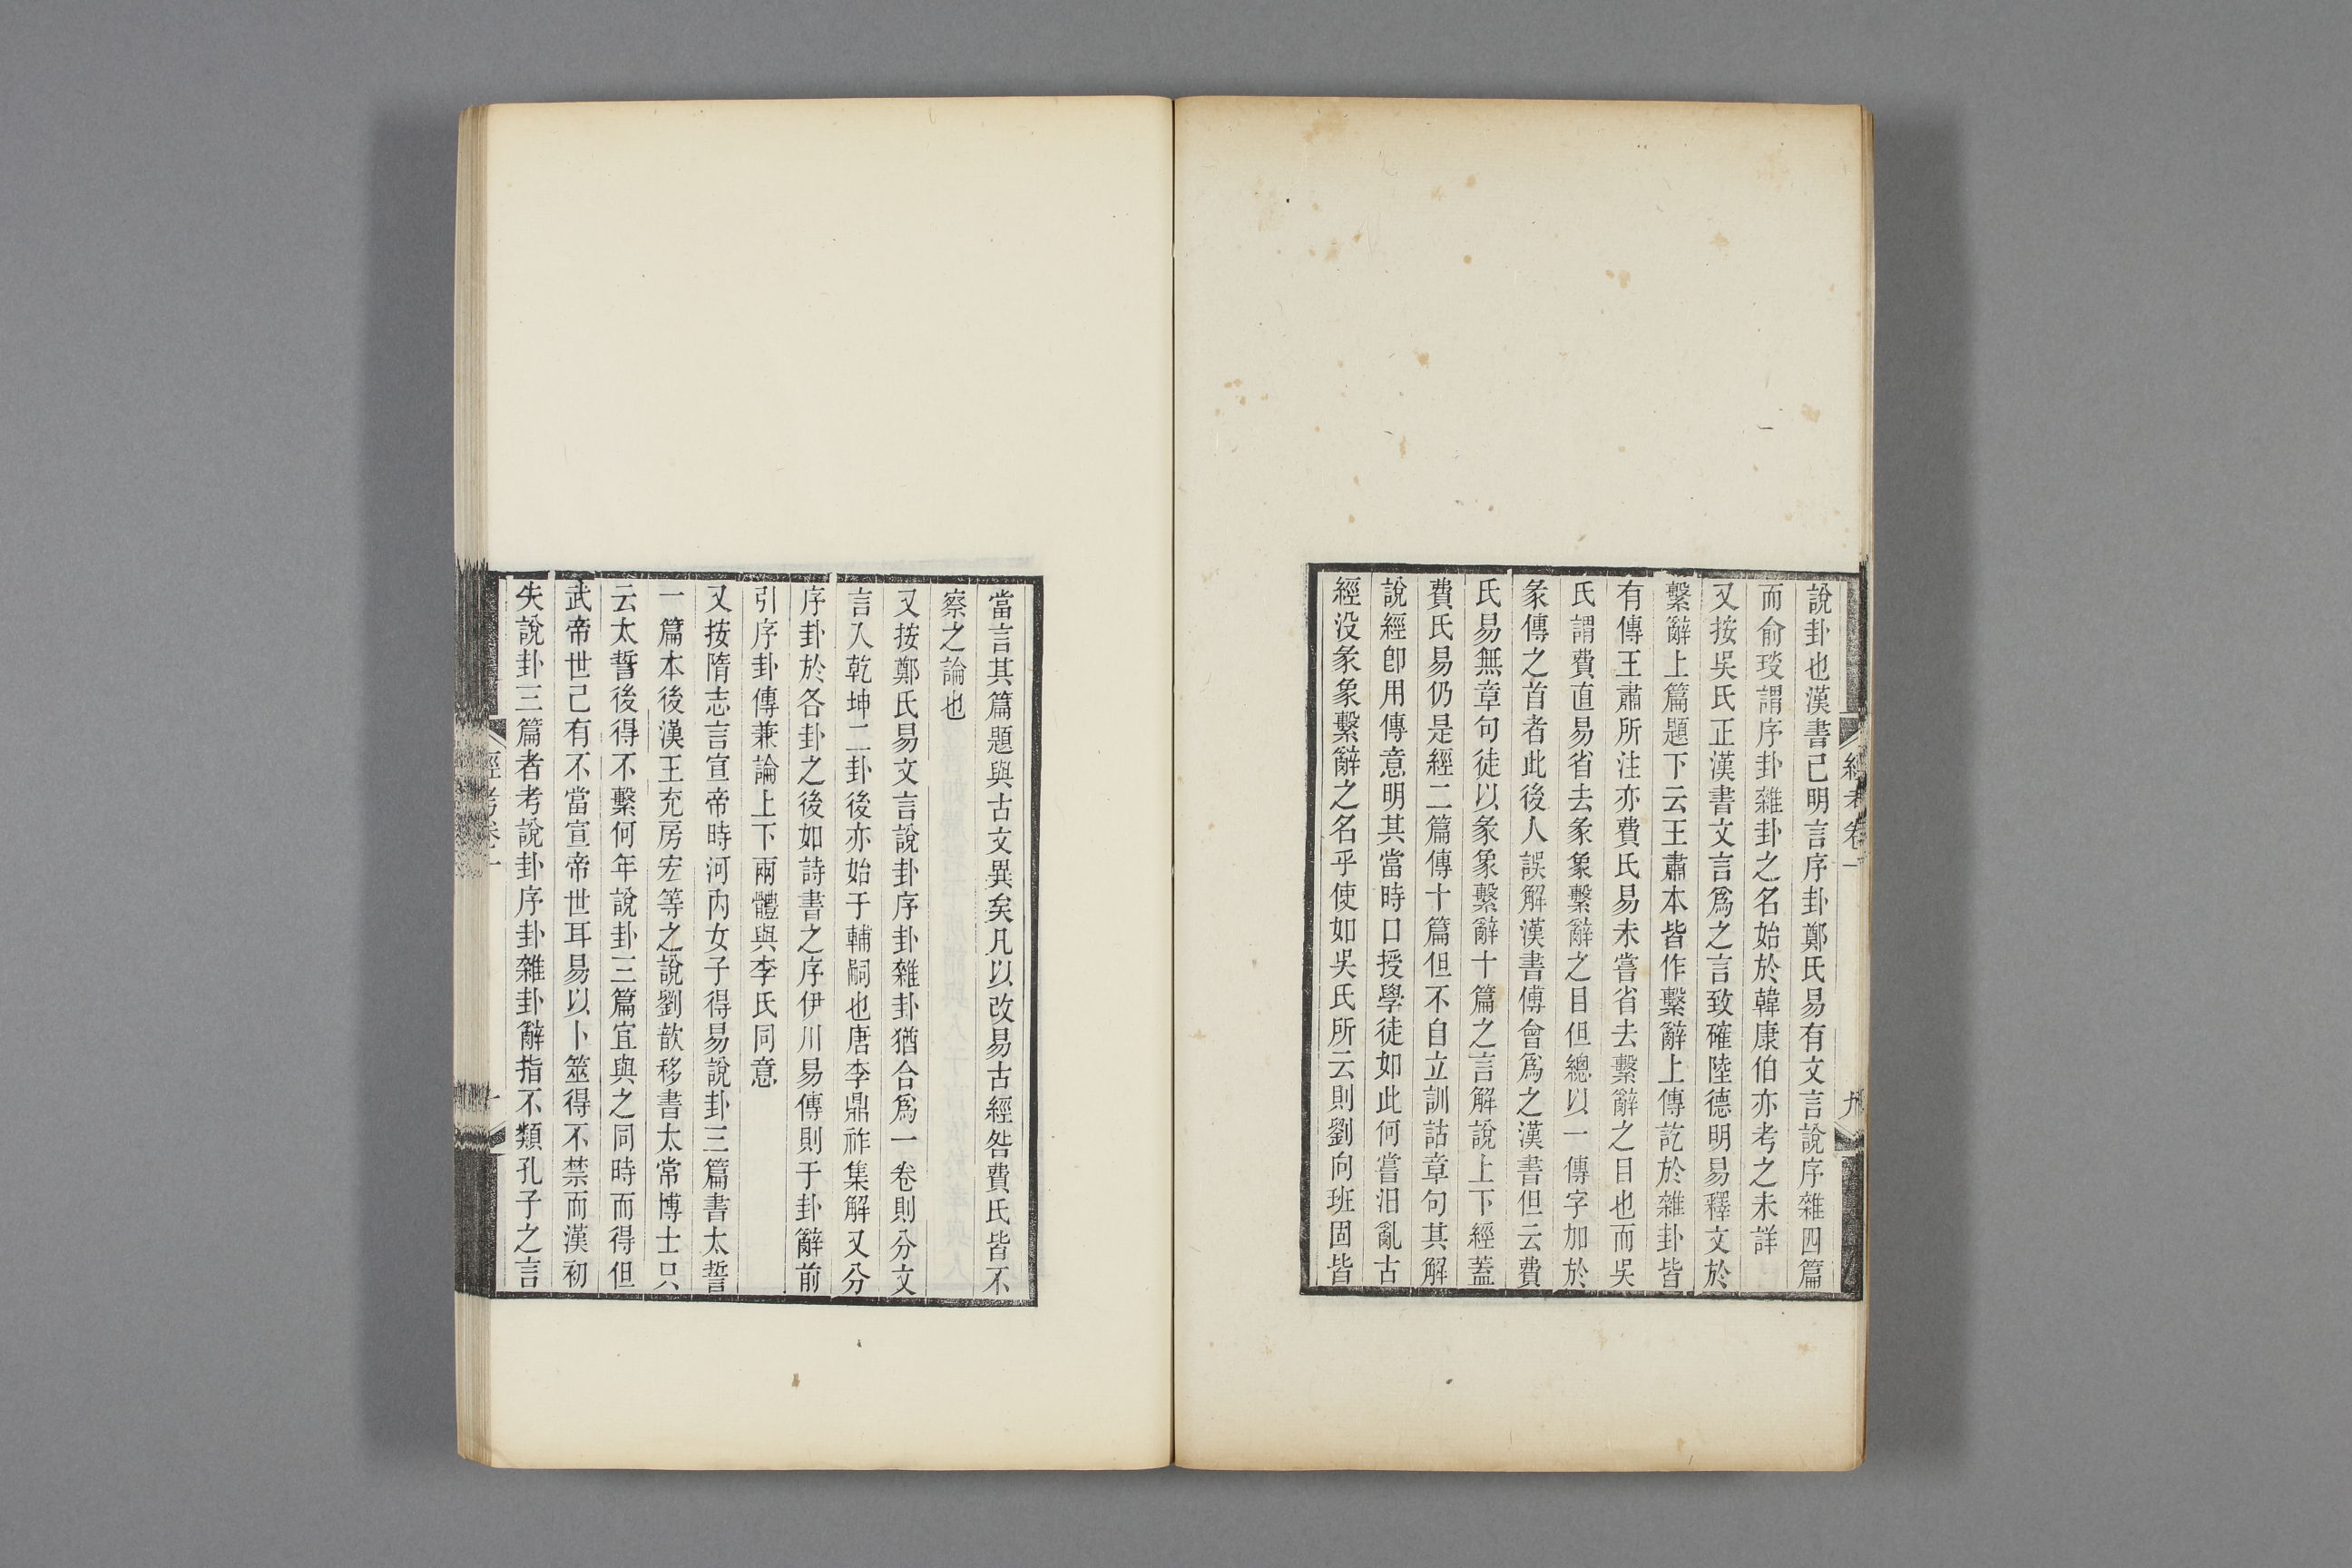 經考卷一
九
說卦也漢書已明言序卦鄭氏易有文言說序雜四篇
而俞琰謂序卦雜卦之名始於韓康伯亦考之未詳
又按吳氏正漢書文言爲之言致確陸德明易釋文於
繫辭上篇題下云王肅本皆作繫辭上傳訖於雜卦皆
有傳王肅所注亦費氏易未嘗省去繫辭之目也而吳
氏謂費直易省去彖象繫辭之目但總以一傳字加於
彖傳之首者此後人誤解漢書傅會爲之漢書但云費
氏易無章句徒以彖象繫辭十篇之言解說上下經蓋
費氏易仍是經二篇傳十篇但不自立訓詁章句其解
說經卽用傳意明其當時口授學徒如此何嘗汨亂古
經没彖象繫辭之名乎使如吳氏所云則劉向班固皆
當言其篇題與古文異矣凡以改易古經咎費氏皆不
察之論也
又按鄭氏易文言說卦序卦雜卦猶合爲一卷則分文
言入乾坤二卦後亦始于輔嗣也唐李鼎祚集解又分
序卦於各卦之後如詩書之序伊川易傳則于卦辭前
引序卦傳兼論上下兩體與李氏同意
又按隋志言宣帝時河內女子得易說卦三篇書太誓
一篇本後漢王充房宏等之說劉歆移書太常博士只
云太誓後得不繫何年說卦三篇宜與之同時而得但
武帝世已有不當宣帝世耳易以卜筮得不禁而漢初
失說卦三篇者考說卦序卦雜卦辭指不類孔子之言
經考卷一
十